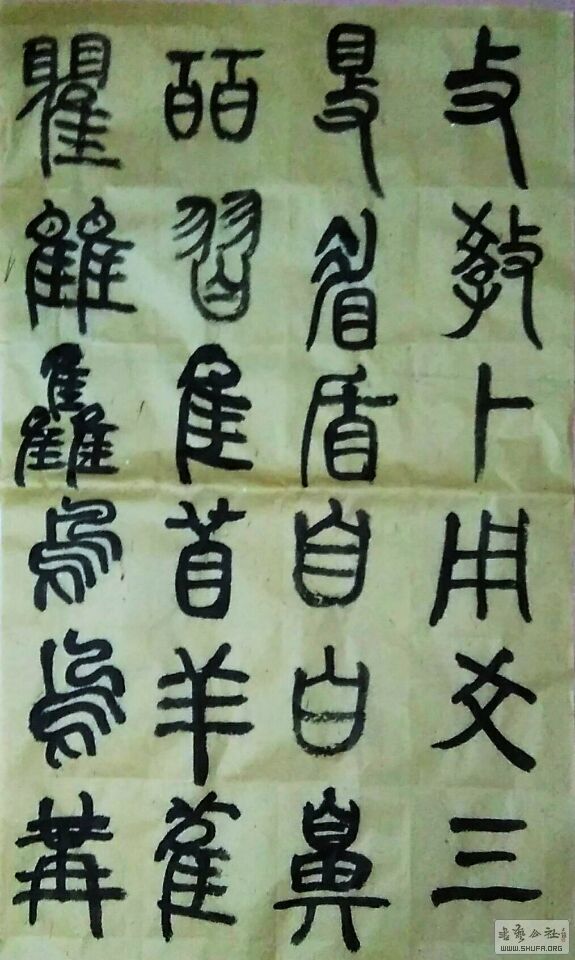 攴教卜用爻三
𥄎眉盾自白鼻
皕習隹苜羊雈
瞿雔雥鳥烏冓
书艺公社
WWW.SHUFA.ORG